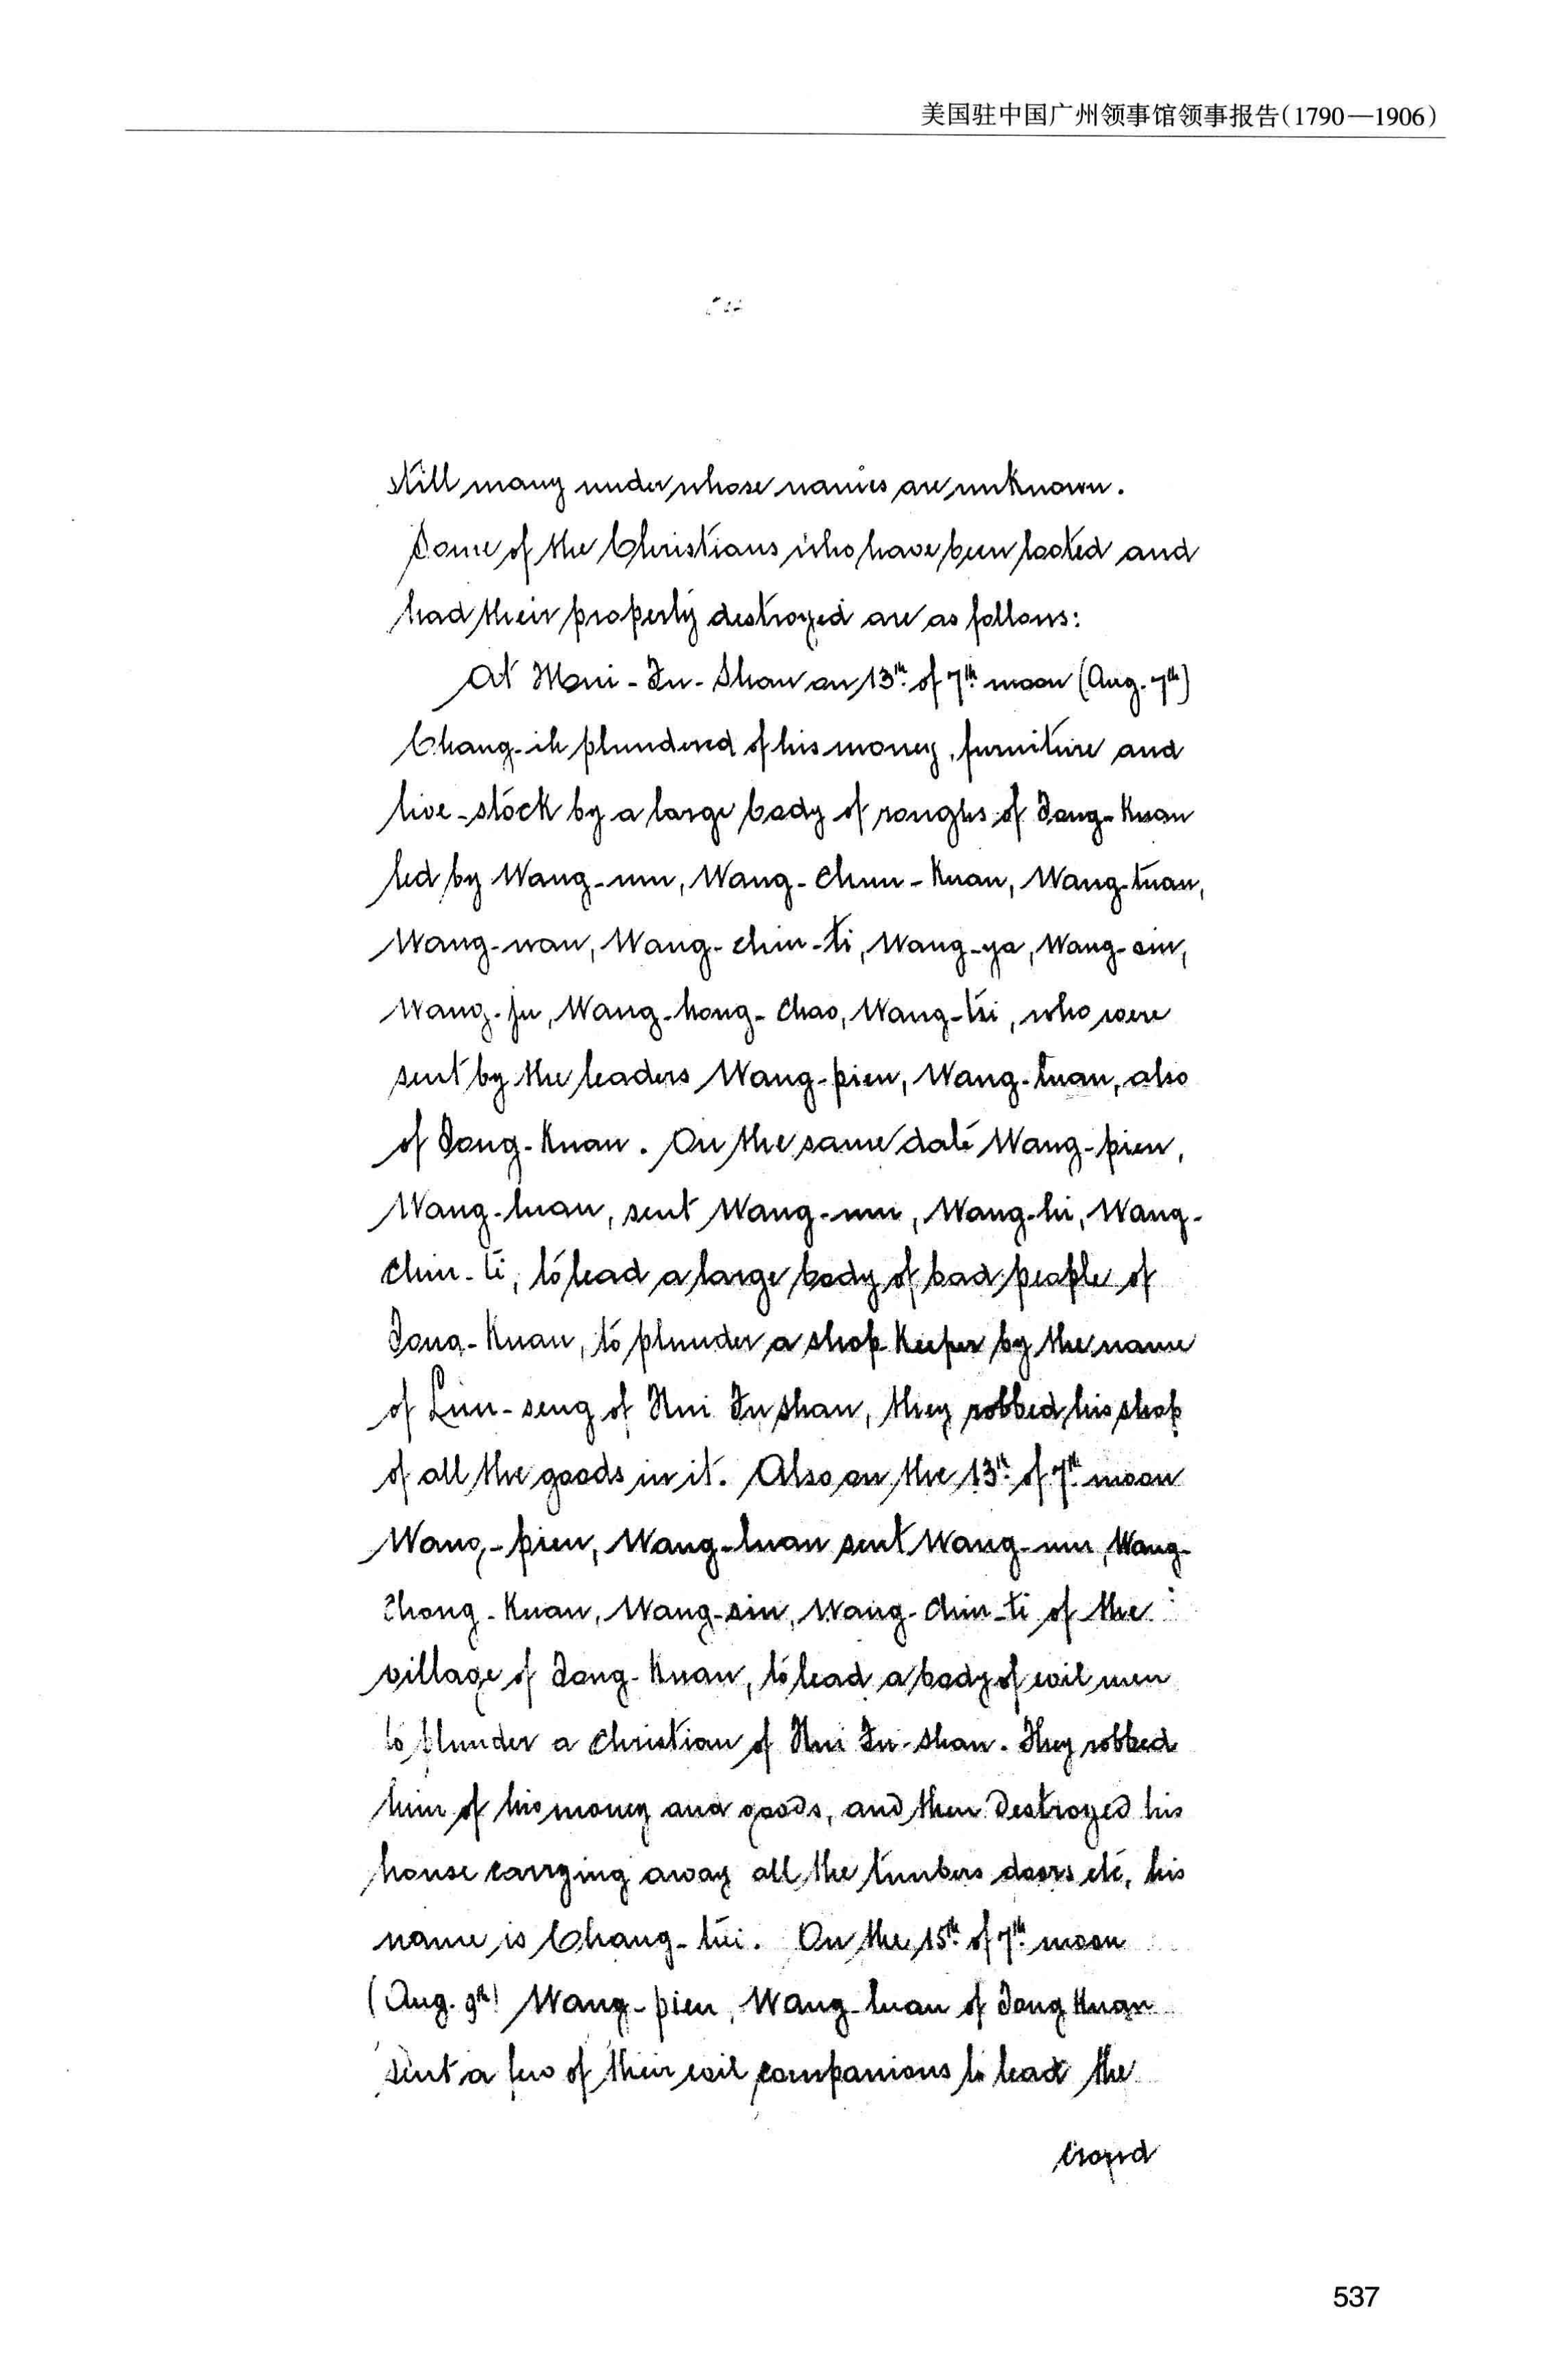 美国驻中国广州领事馆领事报告(1790—1906)
still many under whose names are unknown.
Some of the Christians who have been looted and
had their property destroyed are as follows:
At Mui-Fu-Shan on 13th of 7th moon (Aug. 7th)
Chang-ih plundered of his money, furniture and
live-stock by a large body of roughs of Tong-Kuan
led by Wang-mu, Wang-Chun-Kuan, Wang-tuan,
Wang-wan, Wang-chin-ti, Wang-ya, Wang-sin,
Wang-fu, Wang-hong-Chao, Wang-tsi, who were
sent by the leaders Wang-pien, Wang-luan, also
of Tong-Kuan. On the same date Wang-pien,
Wang-luan, sent Wang-mu, Wang-hi, Wang-
Chin-ti, to lead a large body of bad people of
Tong-Kuan, to plunder a shop Keeper by the name
of Lin-seng of Hui Fu shan, they robbed his shop
of all the goods in it. Also on the 13th of 7th moon
Wang-pien, Wang-luan sent Wang-mu, Wang-
Chong-Kuan, Wang-sin, Wang-Chin-ti of the
village of Tong-Kuan, to lead a body of evil men
to plunder a Christian of Hui Fu-shan. They robbed
him of his money and goods, and then Destroyed his
house carrying away all the timbers doors etc, his
name is Chang-tui. On the 15th of 7th moon
(Aug. 9th) Wang-pien, Wang-luan of Tong Kuan
sent a few of their evil companions to lead the
crowd
537